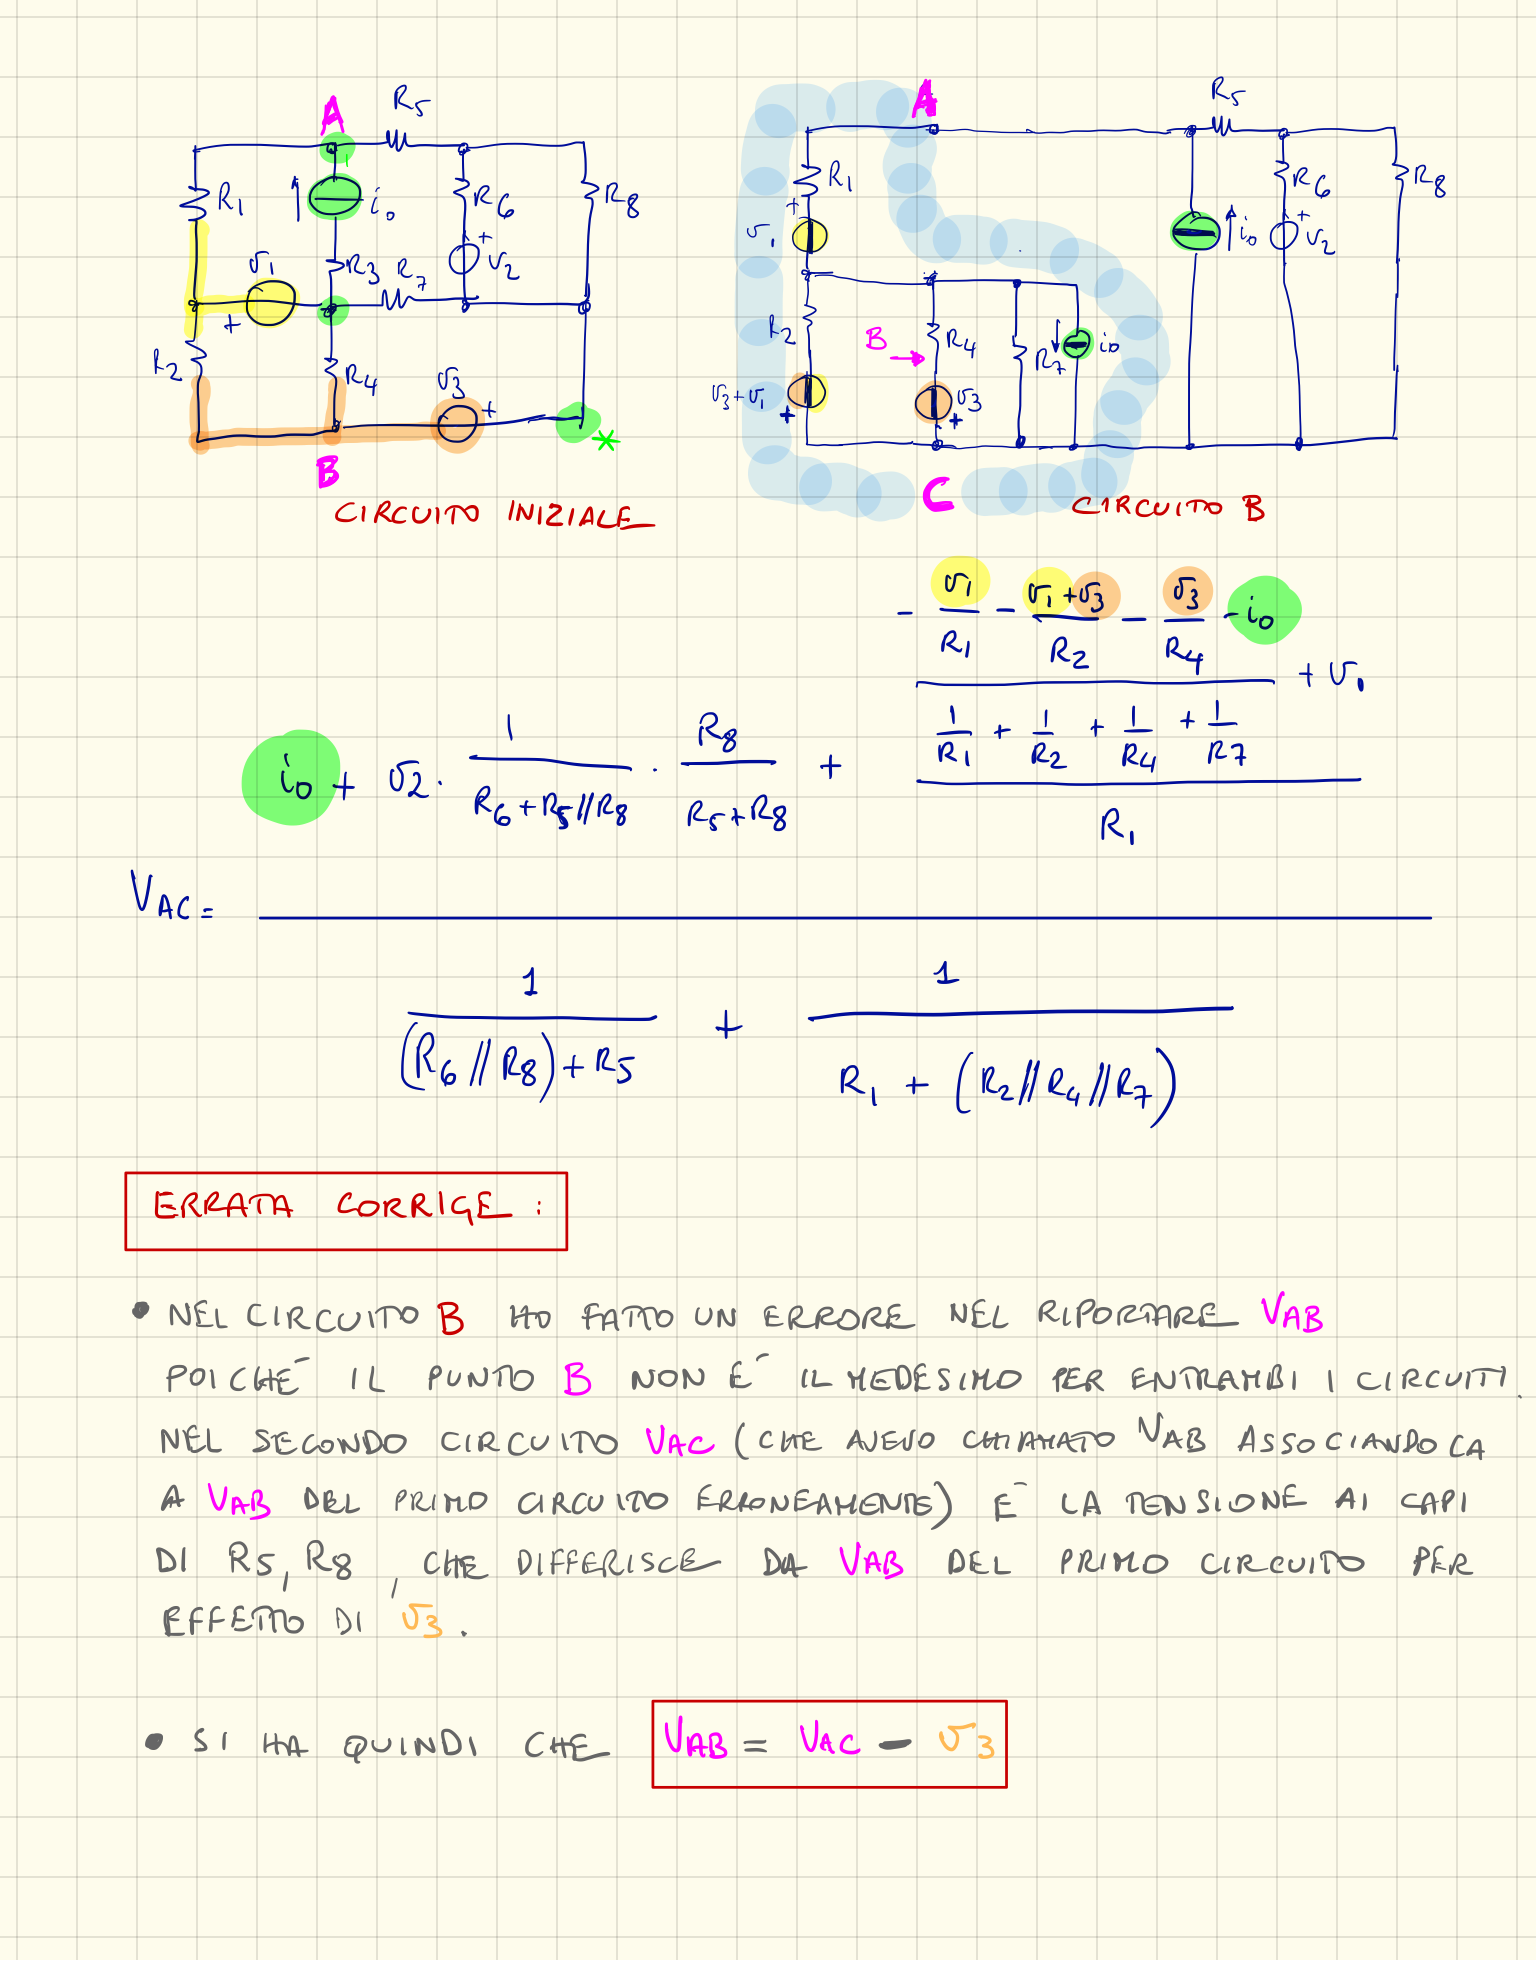 A
R5
R1
i0
R6
R8
v1
R3
R7
+
v2
+
R2
R4
v3
+
*
B
CIRCUITO INIZIALE
A
R5
R1
+
v1
R6
R8
i0
+
v2
R2
B
R4
R7
i0
v3+v1
+
v3
+
C
CIRCUITO B
- v1/R1 - (v1+v3)/R2 - v3/R4 - i0
1/R1 + 1/R2 + 1/R4 + 1/R7
+ v1
R1
i0 + v2 · 1/(R6+R5//R8) · R8/(R5+R8) +
VAC =
1/((R6//R8)+R5) + 1/(R1 + (R2//R4//R7))
ERRATA CORRIGE :
• NEL CIRCUITO B HO FATTO UN ERRORE NEL RIPORTARE VAB
POICHÉ IL PUNTO B NON É IL MEDESIMO PER ENTRAMBI I CIRCUITI.
NEL SECONDO CIRCUITO VAC (CHE AVEVO CHIAMATO VAB ASSOCIANDOLA
A VAB DEL PRIMO CIRCUITO ERRONEAMENTE) É LA TENSIONE AI CAPI
DI R5, R8, CHE DIFFERISCE DA VAB DEL PRIMO CIRCUITO PER
EFFETTO DI v3.
• SI HA QUINDI CHE VAB = VAC - v3